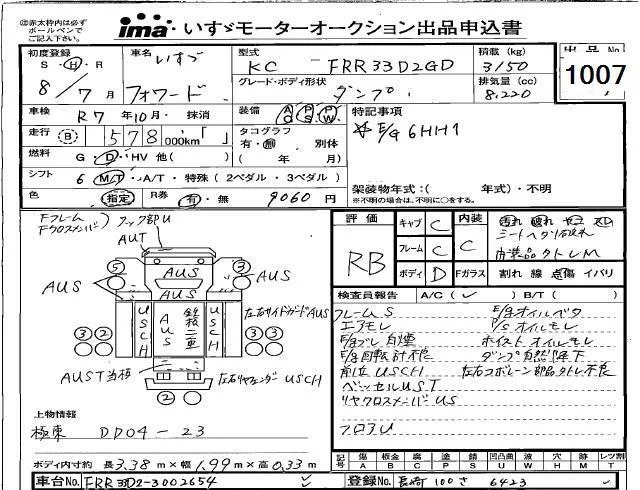 ㊟赤太枠内は必ず
ボールペンで
ご記入下さい。
ima いすゞモーターオークション出品申込書
初度登録
S・H・R
8/7月
車名
いすゞ
フォワード
型式
KC - FRR33D2GD
グレード・ボディ形状
ダンプ
積載(kg)
3150
排気量(cc)
8.220
出品No
1007
車検 R7年10月・抹消
装備 AC PS PW
特記事項
☆E/G 6HH1
走行 B 578,000km「 」
タコグラフ
有・無 別体
( 年 月)
燃料 G・D・HV 他( )
シフト 6 M/T・A/T・特殊(2ペダル・3ペダル)
架装物年式:( 年式)・不明
※不明の場合は、不明に○をする。
色 指定 R券 有・無 9060円
Fフレーム
Fクロスメンバ
フック部U
AUT
⑤ ③
AUS AUS AUS
AUS
USCH
AUS
鉄板二重
USCH
左右サイドガードAUS
③② ③③
AUST当板
左右リヤフェンダーUSCH
②
評価
RB
キャブ C
フレーム C
ボディ D
内装
C
Fガラス
汚れ 破れ ヤニ スレ
シートヘタリ破れ
内装品欠トレM
割れ 線 点傷 イバリ
検査員報告 A/C(✓) B/T( )
フレームS
エアモレ
E/gブレ白煙
E/g回転計不良
前立USCH
ベッセルUST
リヤクロスメンバUS
フロアU
E/gオイルベタ
P/Sオイルモレ
ホイストオイルモレ
ダンプ自然降下
左右コボレーン部品欠トレ不良
上物情報
極東 DD04-23
ボディ内寸約 長3.38m×幅1.99m×高0.33m
記号 傷 板金 腐 塗 錆 凹凸曲 波 穴 時 レツ割
A B C P S U W H M T
車台No. FRR33D2-3002654 ✓
登録No. 長崎100さ6423 ✓